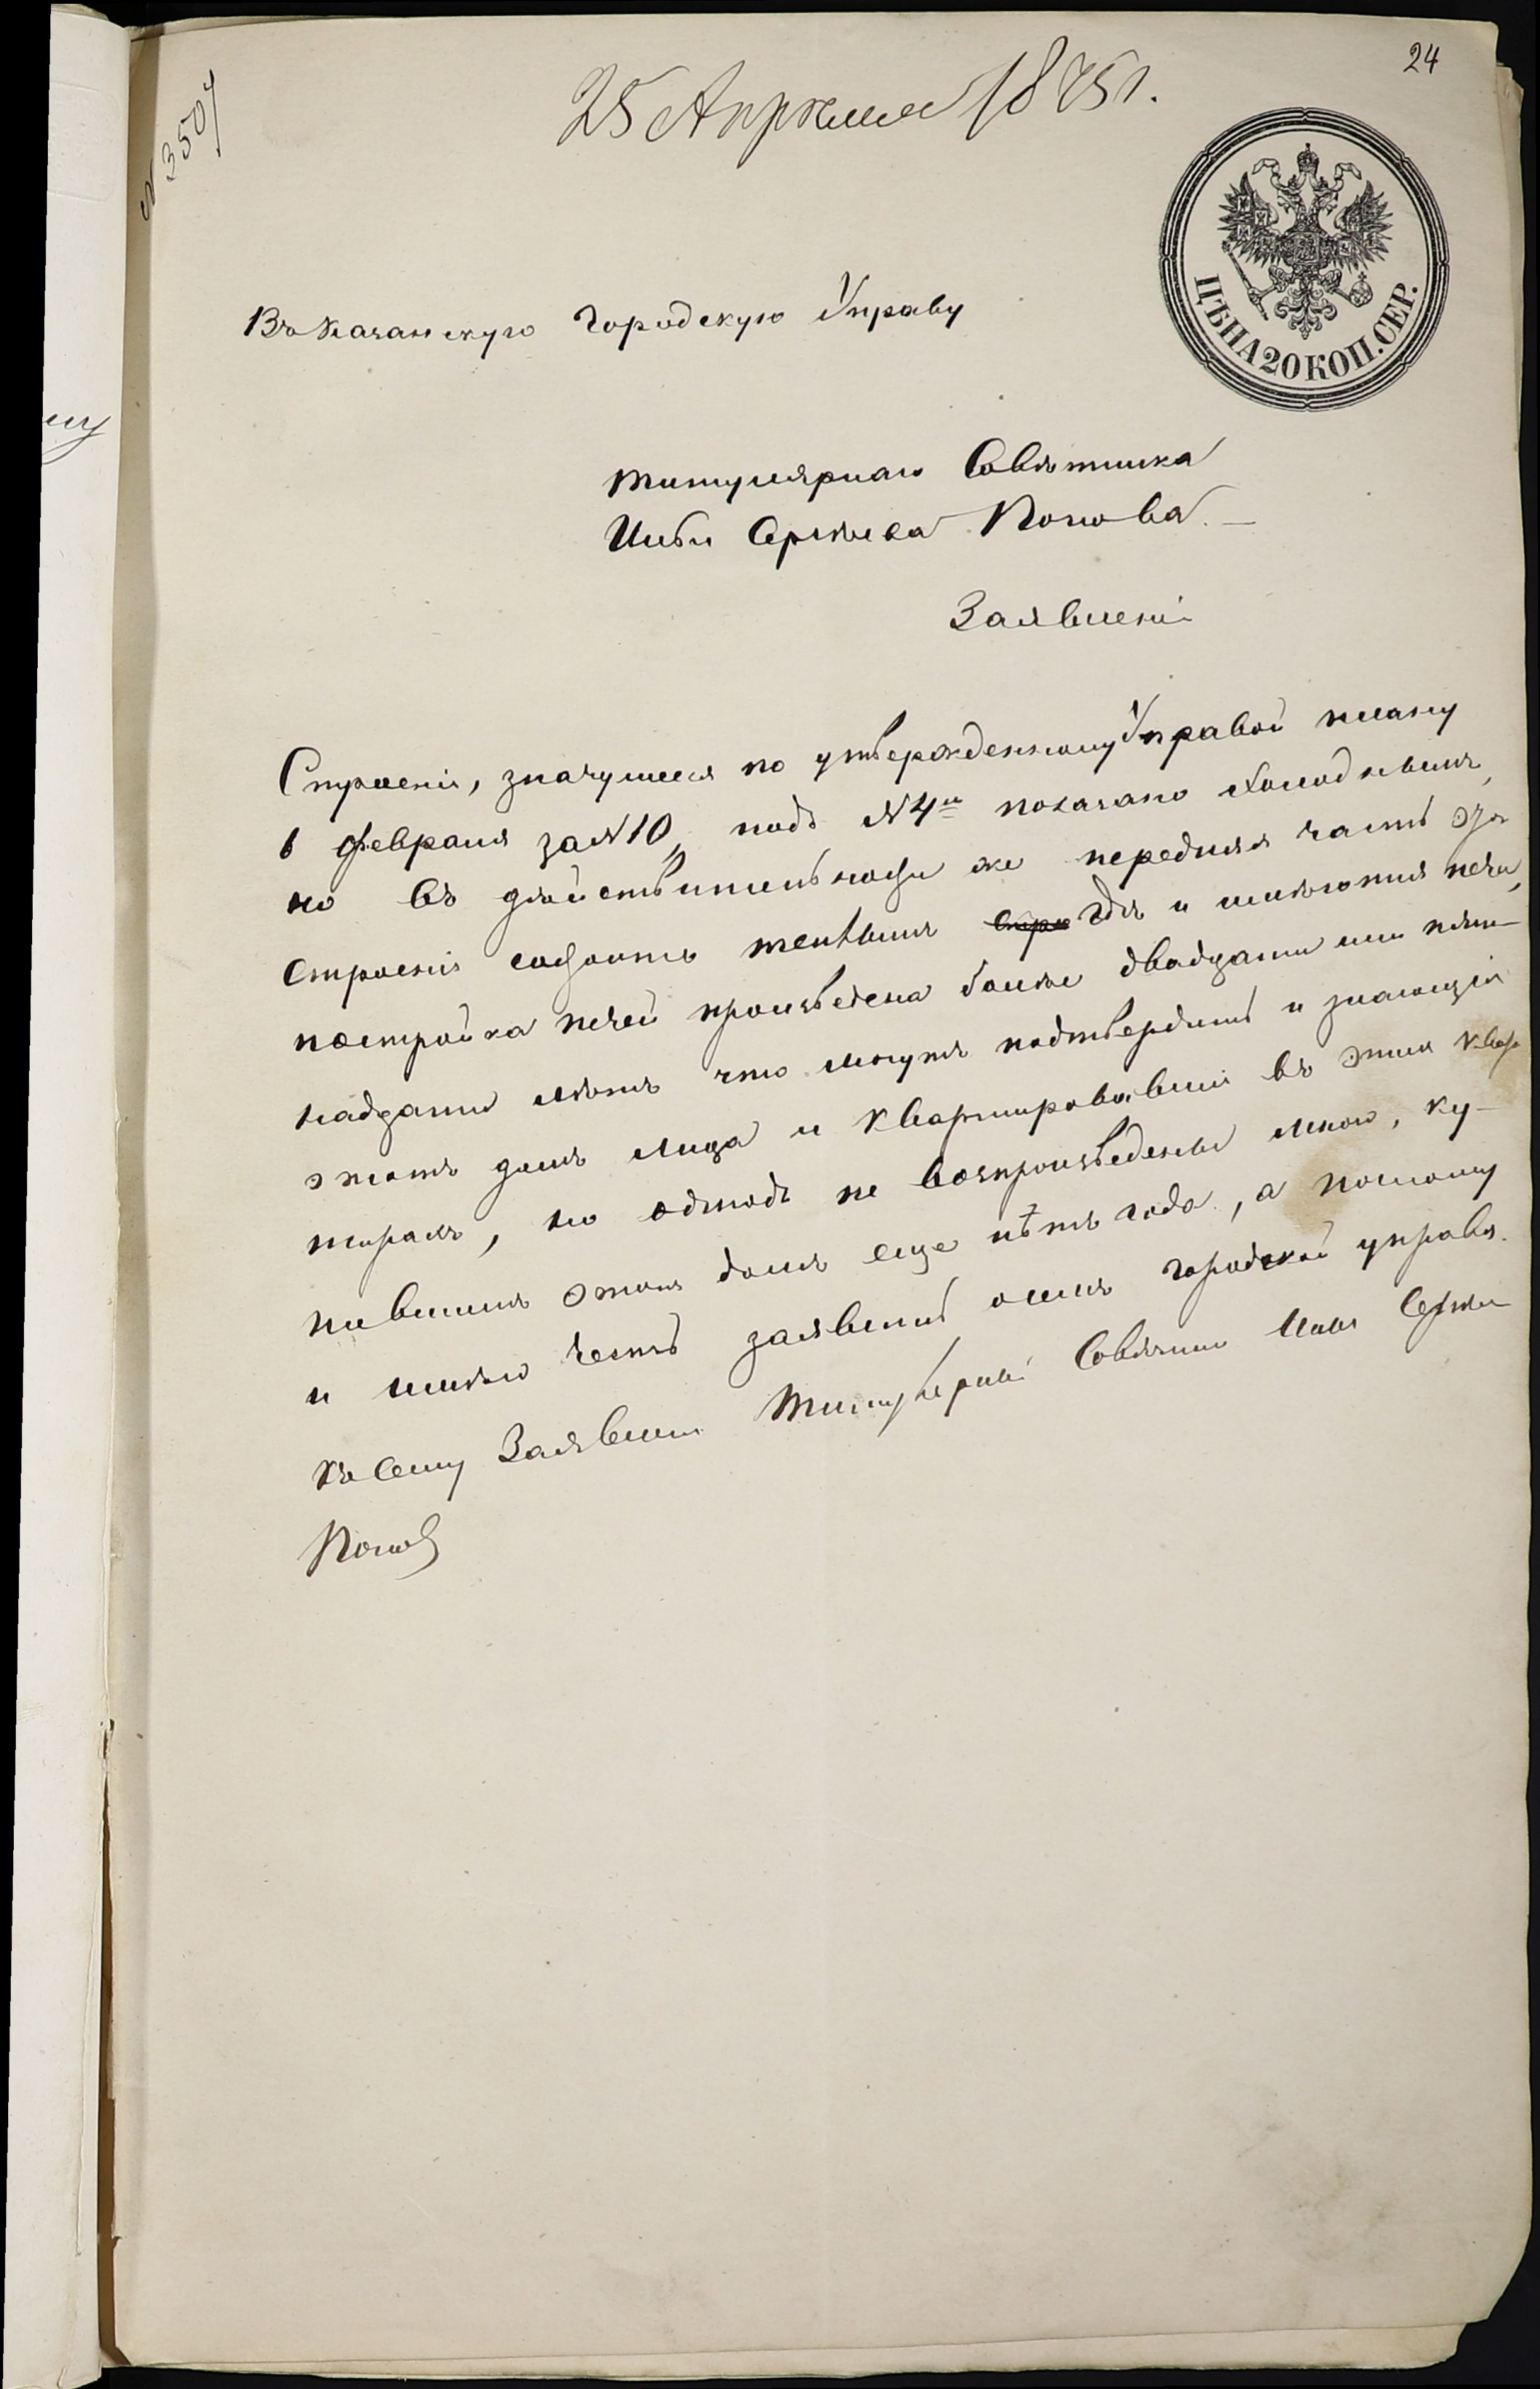 24
25 Апрѣля 1875 г.
№ 3507
ЦѢНА 20 КОП. СЕР.
Въ Казанскую Городскую Управу
Титулярнаго Совѣтника
Ильи Сергѣева Попова.
Заявленіе
Строеніе, значущееся по утвержденному Управой плану
6 февраля за № 10, подъ № 4м показано холоднымъ,
но въ дѣйствительности же передняя часть эта
строенія состоитъ теплымъ гдѣ и имѣются печи,
постройка печей произведена болѣе двадцати или пят-
надцати лѣтъ что могутъ подтвердить и знающіе
этотъ домъ лица и квартировавшіе въ этихъ квар
тирахъ, но отнюдь не воспроизведены мною, ку-
пившимъ этотъ домъ еще нѣтъ года, а потому
и имѣю честь заявить о семъ городской управѣ.
Къ сему Заявленію Титулярный Совѣтникъ Илья Сергѣевъ
Поповъ